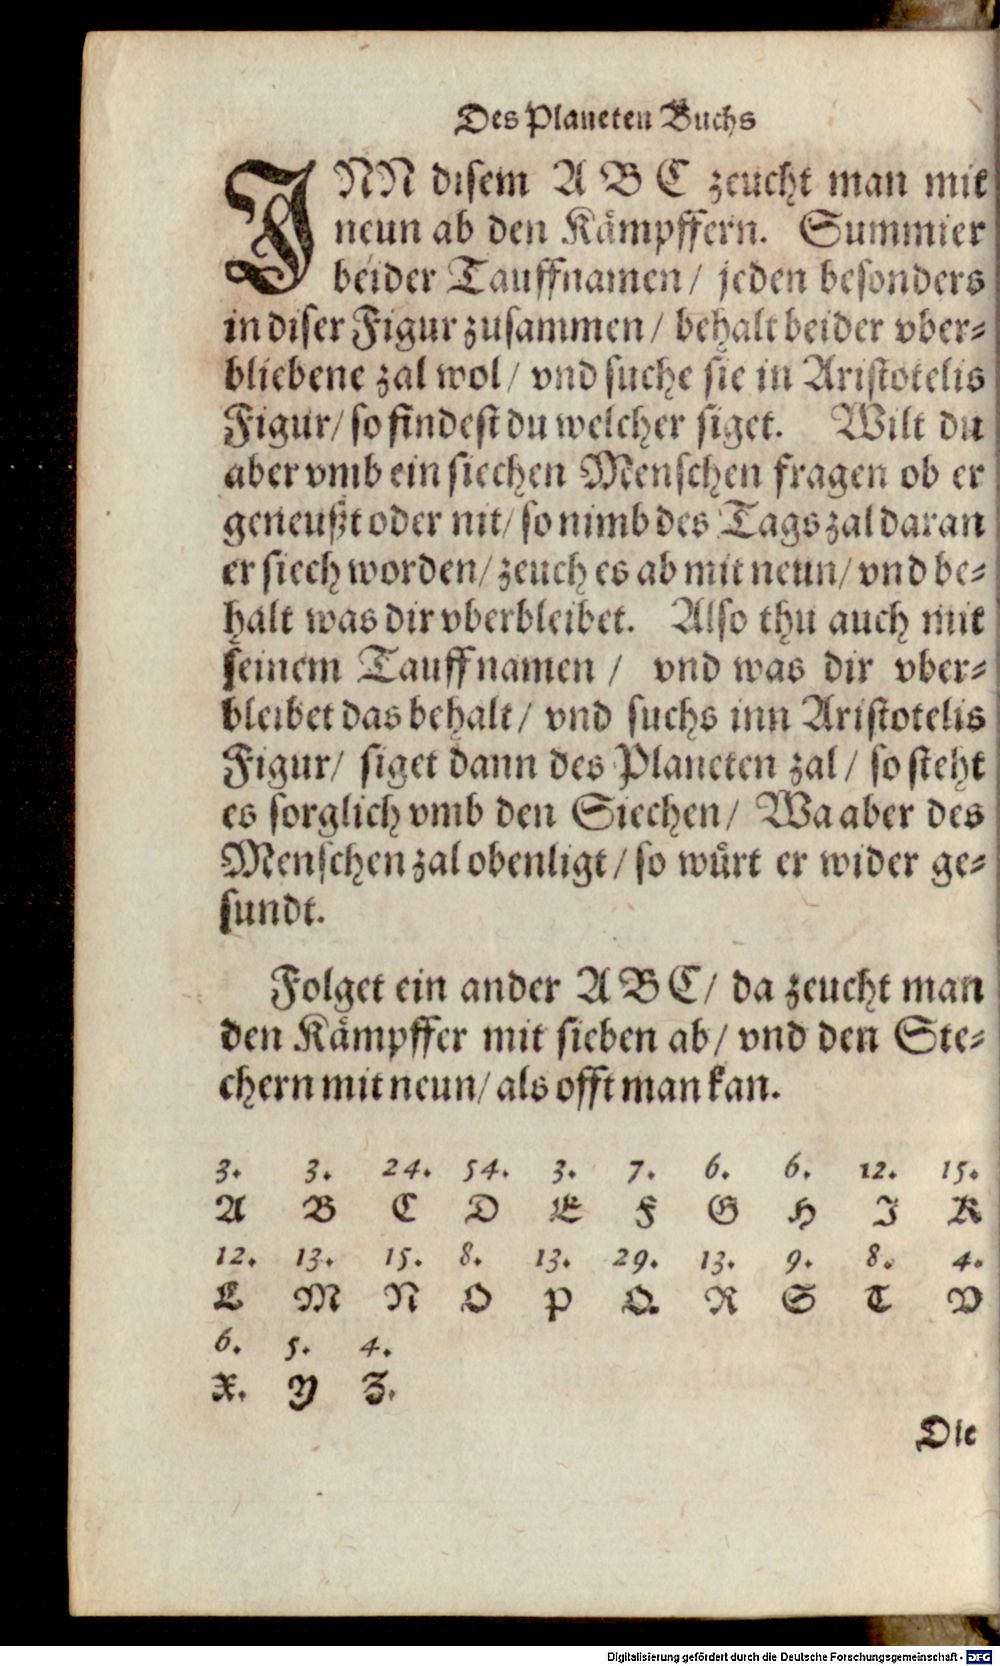 Des Planeten Buchs
INN disem A B C zeucht man mit
neun ab den Kaͤmpffern. Summier
beider Tauffnamen / jeden besonders
in diser Figur zusammen / behalt beider vber⸗
bliebene zal wol / vnd suche sie in Aristotelis
Figur / so findest du welcher siget. Wilt du
aber vmb ein siechen Menschen fragen ob er
geneußt oder nit / so nimb des Tags zal daran
er siech worden / zeuch es ab mit neun / vnd be⸗
halt was dir vberbleibet. Also thu auch mit
seinem Tauffnamen / vnd was dir vber⸗
bleibet das behalt / vnd suchs inn Aristotelis
Figur / siget dann des Planeten zal / so steht
es sorglich vmb den Siechen / Wa aber des
Menschen zal obenligt / so wuͤrt er wider ge⸗
sundt.
Folget ein ander A B C / da zeucht man
den Kaͤmpffer mit sieben ab / vnd den Ste⸗
chern mit neun / als offt man kan.
3. 3. 24. 54. 3. 7. 6. 6. 12. 15.
A B C D E F G H I K
12. 13. 15. 8. 13. 29. 13. 9. 8. 4.
L M N O P Q. R S T V
6. 5. 4.
X. Y Z.
Die
Digitalisierung gefördert durch die Deutsche Forschungsgemeinschaft - DFG